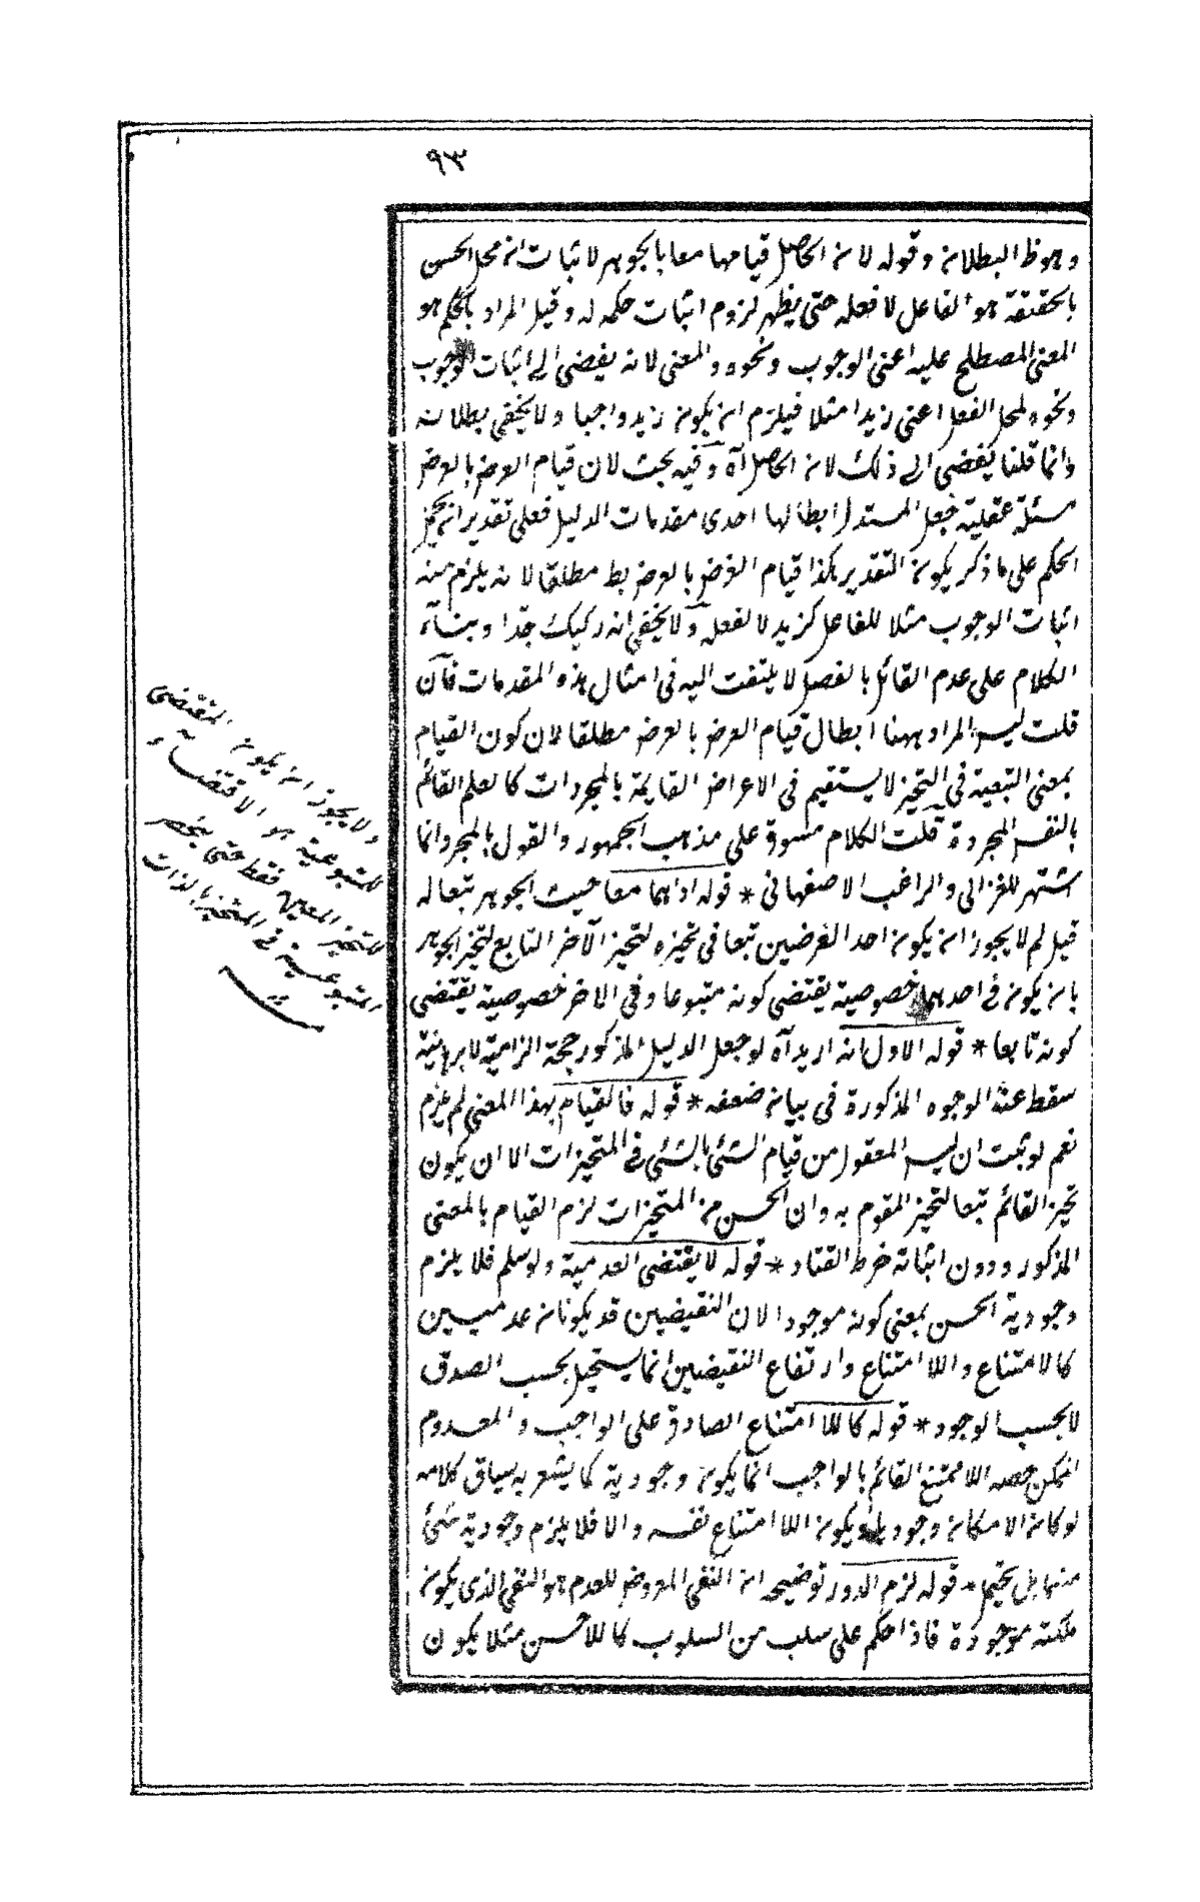 ٩٣
وهوظ البطلان وقوله لان الحاصل قيامها معا بالجوهر لاثبات ان محل الحسن
بالحقيقة هو الفاعل لا فعله حتى يظهر لزوم اثبات حكمه له وقيل المراد بالحكم هو
المعنى المصطلح عليه اعنى الوجوب ونحوه والمعنى لانه يفضى الى اثبات الوجوب
ونحوه لمحل الفعل اعنى زيدا مثلا فيلزم ان يكون زيد واجبا ولا يخفى بطلانه
وانما قلنا يفضى الى ذلك لان الحاصل آه وفيه بحث لان قيام العرض بالعرض
مسئلة عقلية فجعل المستدل ابطالها احدى مقدمات الدليل فعلى تقدير ان يحمل
الحكم على ما ذكر يكون التقدير هكذا قيام العرض بالعرض بط مطلقا لانه يلزم منه
اثبات الوجوب مثلا للفاعل كزيد لا لفعله ولا يخفى انه ركيك جدا وبناء
الكلام على عدم القائل بالفصل لا يلتفت اليه فى امثال هذه المقدمات فان
قلت ليس المراد ههنا ابطال قيام العرض بالعرض مطلقا لان كون القيام
بمعنى التبعية فى التحيز لا يستقيم فى الاعراض القايمة بالمجردات كالعلم القائم
بالنفس المجردة قلت الكلام مسوق على مذهب الجمهور والقول بالمجرد انما
اشتهر للغزالى والراغب الاصفهانى * قوله اذ هما معا حيث الجوهر تبعا له
قيل لم لا يجوز ان يكون احد العرضين تبعا فى تحيزه لتحيز الآخر التابع لتحيز الجوهر
بان يكون فى احدهما خصوصية يقتضى كونه متبوعا وفى الاخر خصوصية يقتضى
كونه تابعا * قوله الاول انه اريد آه لو جعل الدليل المذكور حجة الزامية لا برهانية
سقط عنه الوجوه المذكورة فى بيان ضعفه * قوله فالقيام بهذا المعنى لم يلزم
نعم لو ثبت ان ليس المعقول من قيام الشئ بالشئ فى المتحيزات الا ان يكون
تحيز القائم تبعا لتحيز المقوم به وان الحسن من المتحيزات لزم القيام بالمعنى
المذكور ودون اثباته خرط القتاد * قوله لا يقتضى العدمية ولو سلم فلا يلزم
وجودية الحسن بمعنى كونه موجودا لان النقيضين قد يكونان عدميين
كالامتناع واللا امتناع وارتفاع النقيضين انما يستحيل بحسب الصدق
لا بحسب الوجود * قوله كاللا امتناع الصادق على الواجب والمعدوم
الممكن حصه اللا ممتنع القائم بالواجب انما يكون وجودية كما يشعر به سياق كلامه
لو كان الامكان وجوديا ويكون اللا امتناع نفسه والا فلا يلزم وجودية شئ
منهما بل يختم * قوله لزم الدور توضيحه ان النفى المعروض للعدم هو النفى الذى يكون
ملكته موجودة فاذا حكم على سلب من السلوب كاللاحسن مثلا يكون
ولا يجوز ان يكون المقتضى
للمتبوعية هو الاقتضاء
للتحيز المعين فقط حتى ينحصر
المتبوعية فى المتحيز بالذات